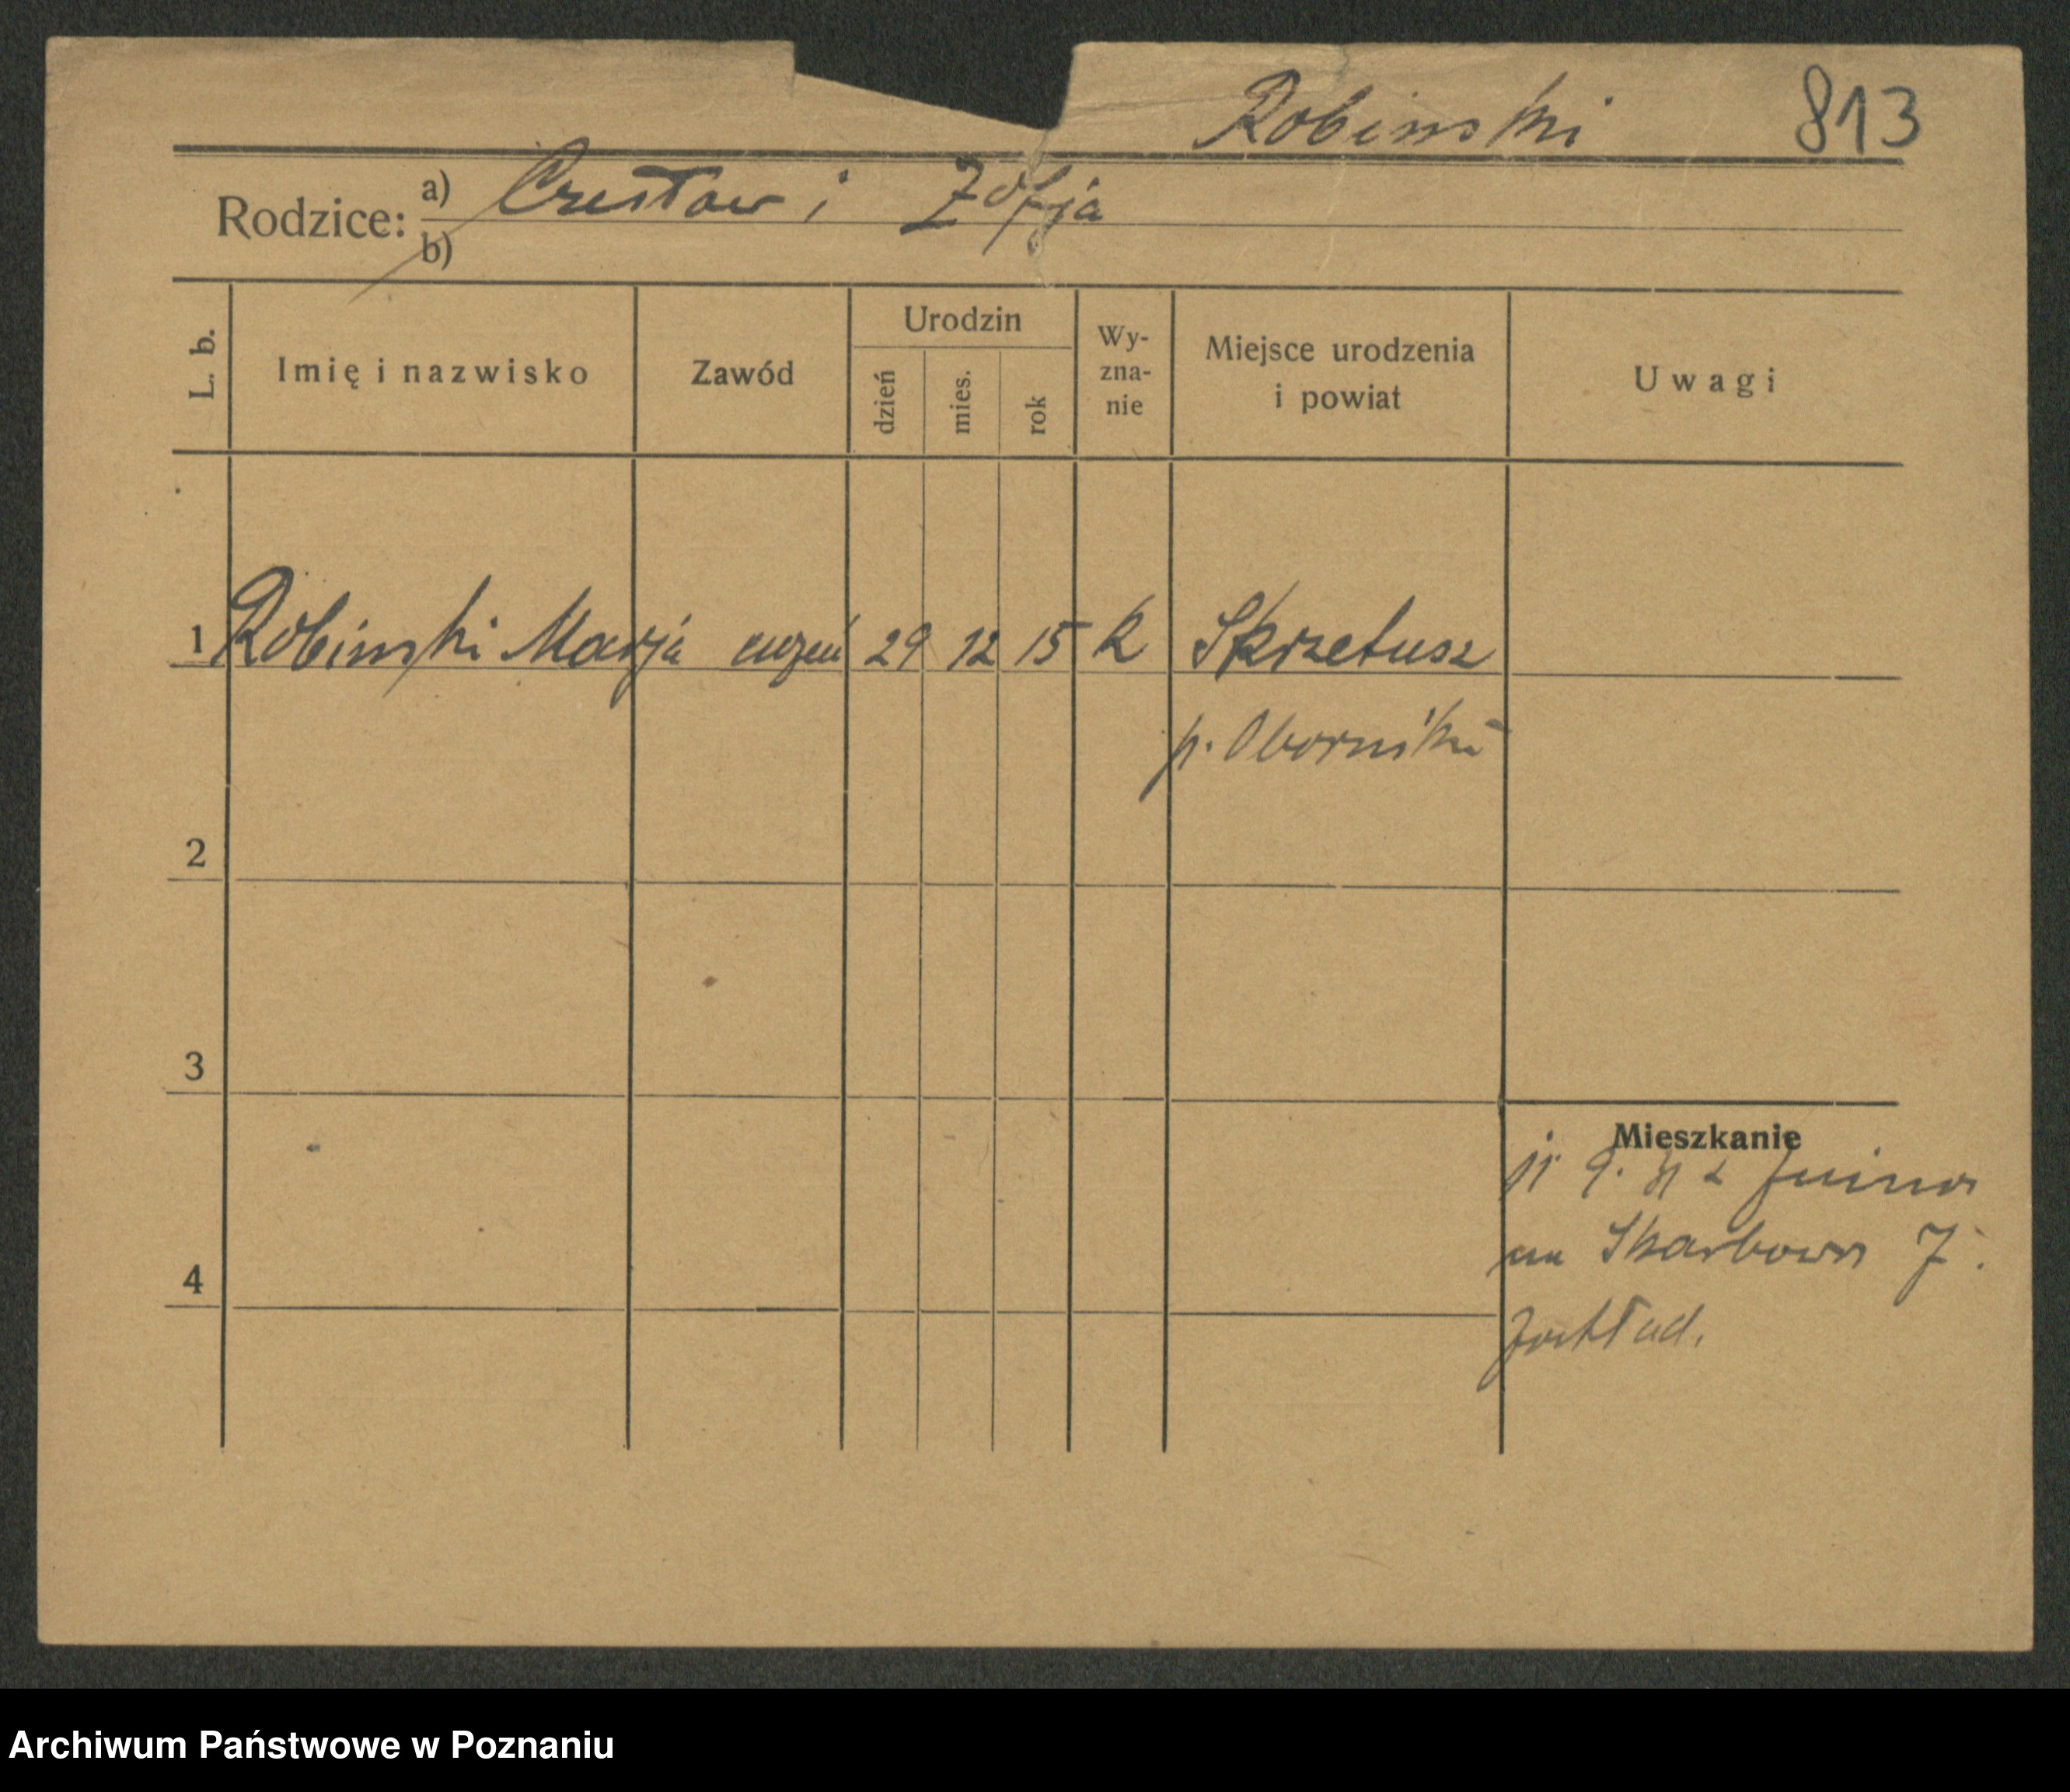 Robinski 813
Rodzice: a) Czesław i Zofja
b)
L. b.
Imię i nazwisko
Zawód
Urodzin
dzień
mies.
rok
Wy-
zna-
nie
Miejsce urodzenia
i powiat
Uwagi
1 Robinski Marja uczeń 29 12 15 k Skrzetusz
p. Oborniki
2
3
4
Mieszkanie
9.
na Skarbowa 7.
zakład.
Archiwum Państwowe w Poznaniu